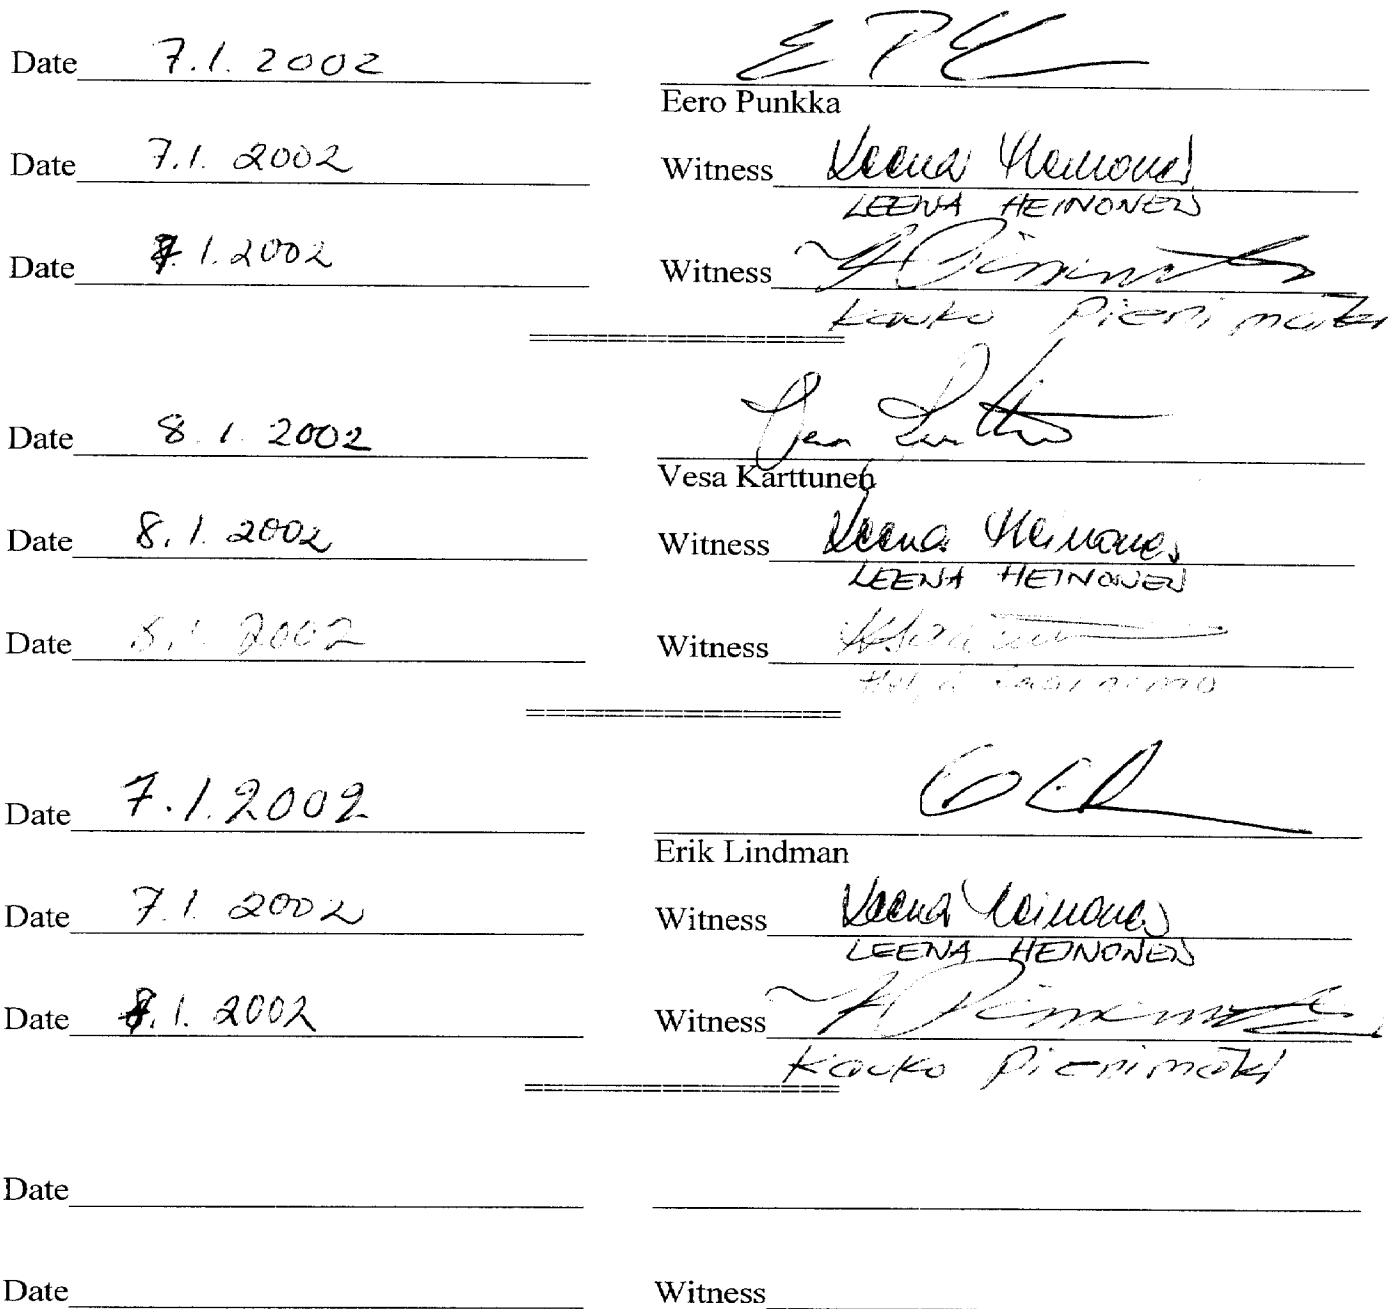 Date 7.1. 2002
Eero Punkka
Date 7.1. 2002 Witness Leena Heinonen
LEENA HEINONEN
Date 7.1.2002 Witness
Kauko Pienimäki
Date 8.1.2002
Vesa Karttunen
Date 8.1.2002 Witness Leena Heinonen
LEENA HEINONEN
Date 8.1.2002 Witness
Date 7.1.2002
Erik Lindman
Date 7.1.2002 Witness Leena Heinonen
LEENA HEINONEN
Date 1.2002 Witness
Kauko Pienimäki
Date
Date Witness